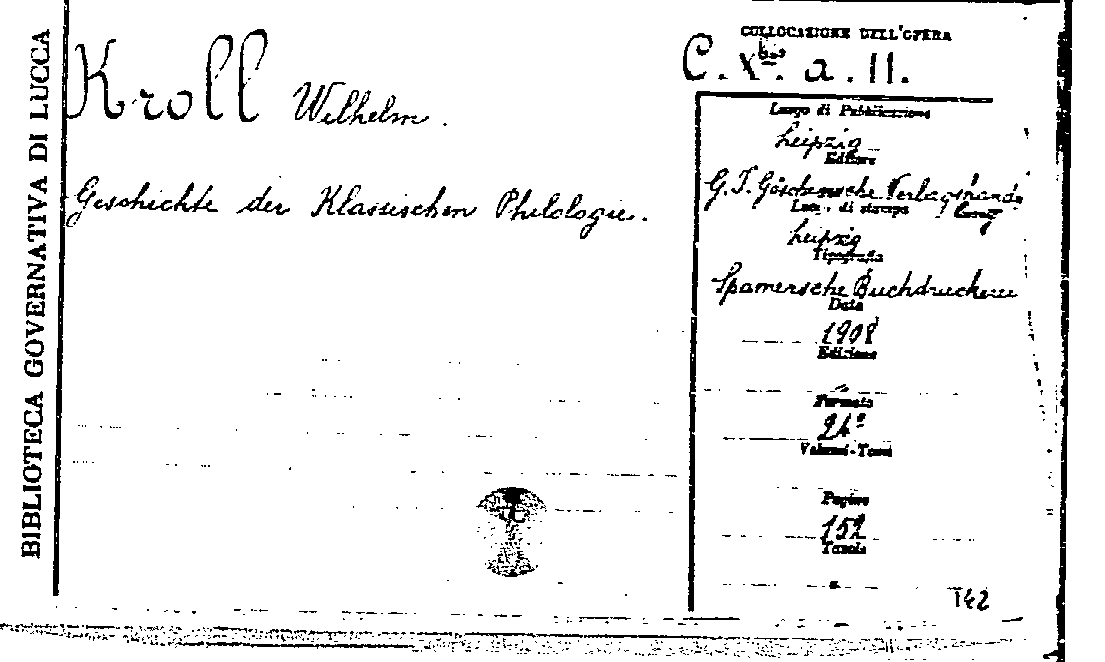 BIBLIOTECA GOVERNATIVA DI LUCCA
Kroll Wilhelm.
Geschichte der Klassischen Philologie.
COLLOCAZIONE DELL'OPERA
C. X bis. a. 11.
Luogo di Pubblicazione
Leipzig
Editore
G. J. Göschensche Verlagshand-
lung
Luogo di stampa
Leipzig
Tipografia
Spamersche Buchdruckerei
Data
1908
Edizione
Formato
24°
Volumi-Tomi
Pagine
152
Tavole
T42